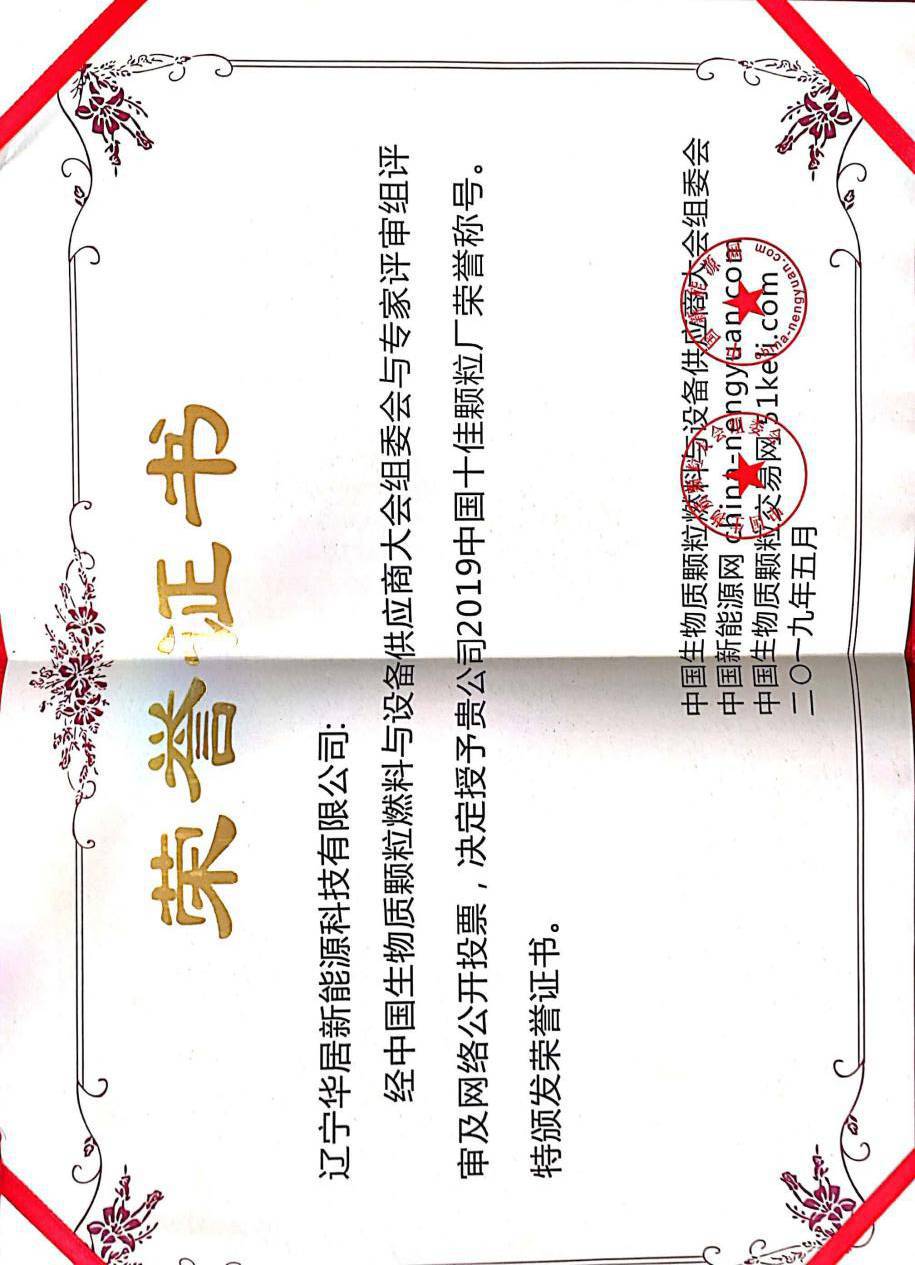 荣誉证书
辽宁华居新能源科技有限公司:
经中国生物质颗粒燃料与设备供应商大会组委会与专家评审组评
审及网络公开投票，决定授予贵公司2019中国十佳颗粒厂荣誉称号。
特颁发荣誉证书。
中国生物质颗粒燃料与设备供应商大会组委会
中国新能源网 china-nengyuan.com
中国生物质颗粒交易网 51keli.com
二〇一九年五月
china-nengyuan.com